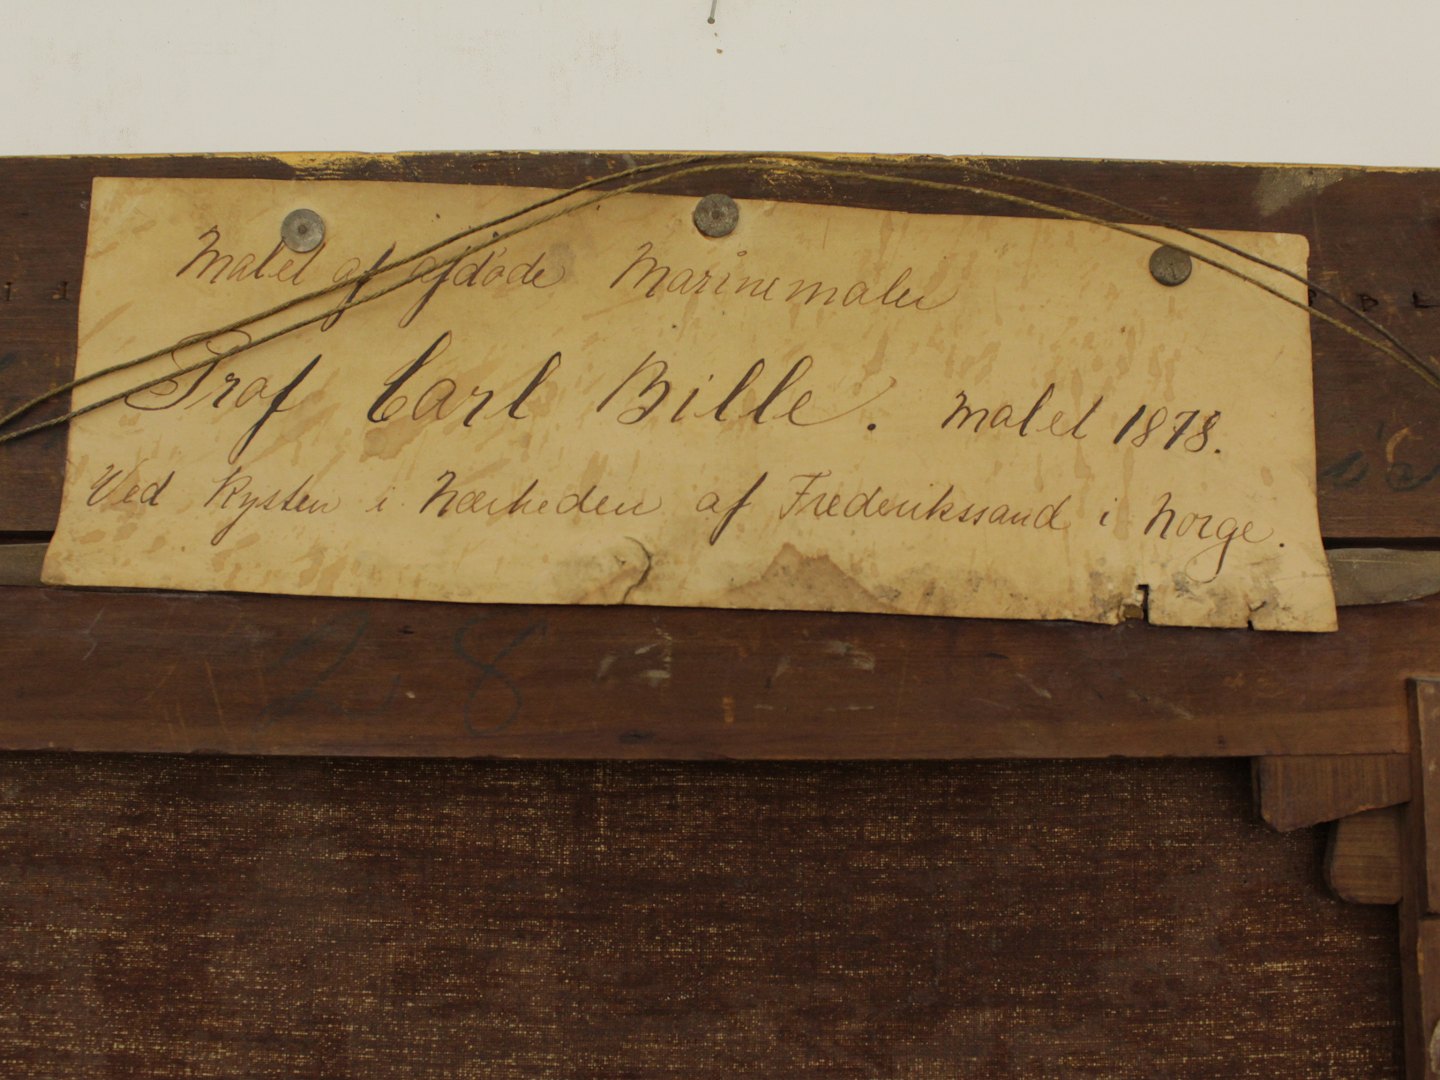 Malet af afdøde Marinemaler
Prof Carl Bille. Malet 1878.
Ved Kysten i Nærheden af Frederikssand i Norge.
28